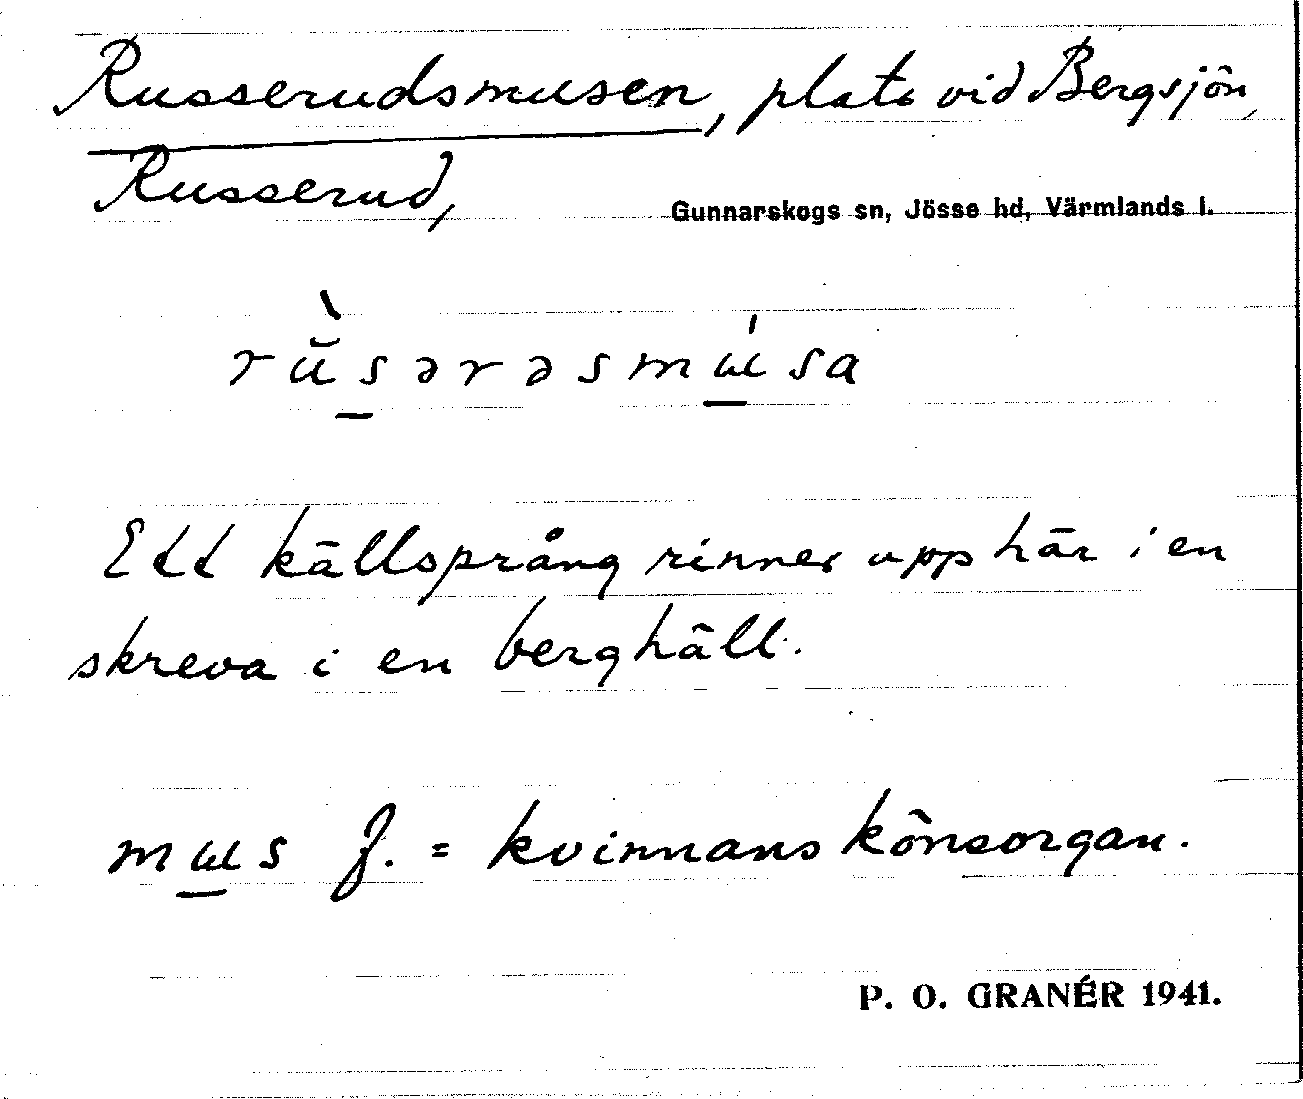 Russerudsmusen, plats vid Bergsjön,
Russerud,
Gunnarskogs sn, Jösse hd, Värmlands l.
rŭ̀s̲ərəsmɯ̲́sa
Ett källsprång rinner upp här i en
skreva i en berghäll.
mɯ̲s f. = kvinnans könsorgan.
P. O. GRANÉR 1941.